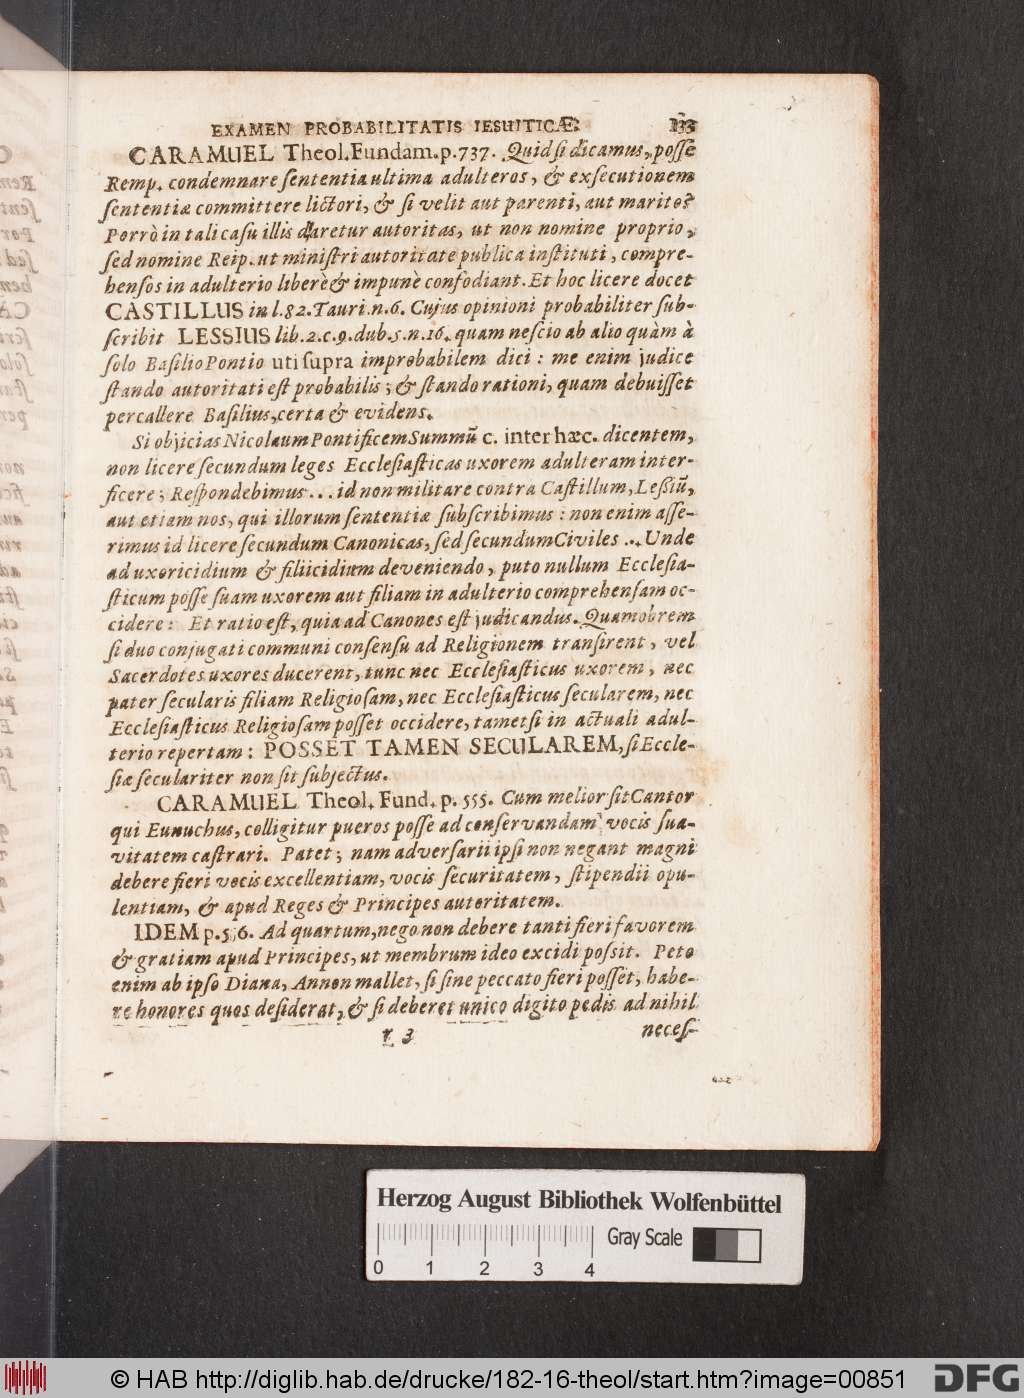 EXAMEN PROBABILITATIS IESUITICÆ. 133
CARAMUEL Theol. Fundam. p. 737. Quid si dicamus, posse
Remp. condemnare sententia ultima adulteros, & exsecutionem
sententiæ committere lictori, & si velit aut parenti, aut marito?
Porrò in tali casu illis daretur autoritas, ut non nomine proprio,
sed nomine Reip. ut ministri autoritate publica instituti, compre-
hensos in adulterio liberè & impunè confodiant. Et hoc licere docet
CASTILLUS in l. 82. Tauri. n. 6. Cujus opinioni probabiliter sub-
scribit LESSIUS lib. 2. c. 9. dub. 5. n. 16. quam nescio ab alio quàm à
solo Basilio Pontio uti supra improbabilem dici: me enim judice
stando autoritati est probabilis; & stando rationi, quam debuisset
percallere Basilius, certa & evidens.
Si objicias Nicolaum Pontificem Summũ c. inter hæc. dicentem,
non licere secundum leges Ecclesiasticas uxorem adulteram inter-
ficere; Respondebimus... id non militare contra Castillum, Lessiũ,
aut etiam nos, qui illorum sententiæ subscribimus: non enim asse-
rimus id licere secundum Canonicas, sed secundum Civiles... Unde
ad uxoricidium & filiicidium deveniendo, puto nullum Ecclesia-
sticum posse suam uxorem aut filiam in adulterio comprehensam oc-
cidere: Et ratio est, quia ad Canones est judicandus. Quamobrem
si duo conjugati communi consensu ad Religionem transirent, vel
Sacerdotes uxores ducerent, tunc nec Ecclesiasticus uxorem, nec
pater secularis filiam Religiosam, nec Ecclesiasticus secularem, nec
Ecclesiasticus Religiosam posset occidere, tametsi in actuali adul-
terio repertam: POSSET TAMEN SECULAREM, si Eccle-
siæ seculariter non sit subjectus.
CARAMUEL Theol. Fund. p. 555. Cum melior sit Cantor
qui Eunuchus, colligitur pueros posse ad conservandam vocis sua-
vitatem castrari. Patet; nam adversarii ipsi non negant magni
debere fieri vocis excellentiam, vocis securitatem, stipendii opu-
lentiam, & apud Reges & Principes autoritatem.
IDEM p. 556. Ad quartum, nego non debere tanti fieri favorem
& gratiam apud Principes, ut membrum ideo excidi possit. Peto
enim ab ipso Diana, Annon mallet, si sine peccato fieri posset, habe-
re honores quos desiderat, & si deberet unico digito pedis ad nihil
L 3 neces-
Herzog August Bibliothek Wolfenbüttel
Gray Scale
0 1 2 3 4
© HAB http://diglib.hab.de/drucke/182-16-theol/start.htm?image=00851
DFG